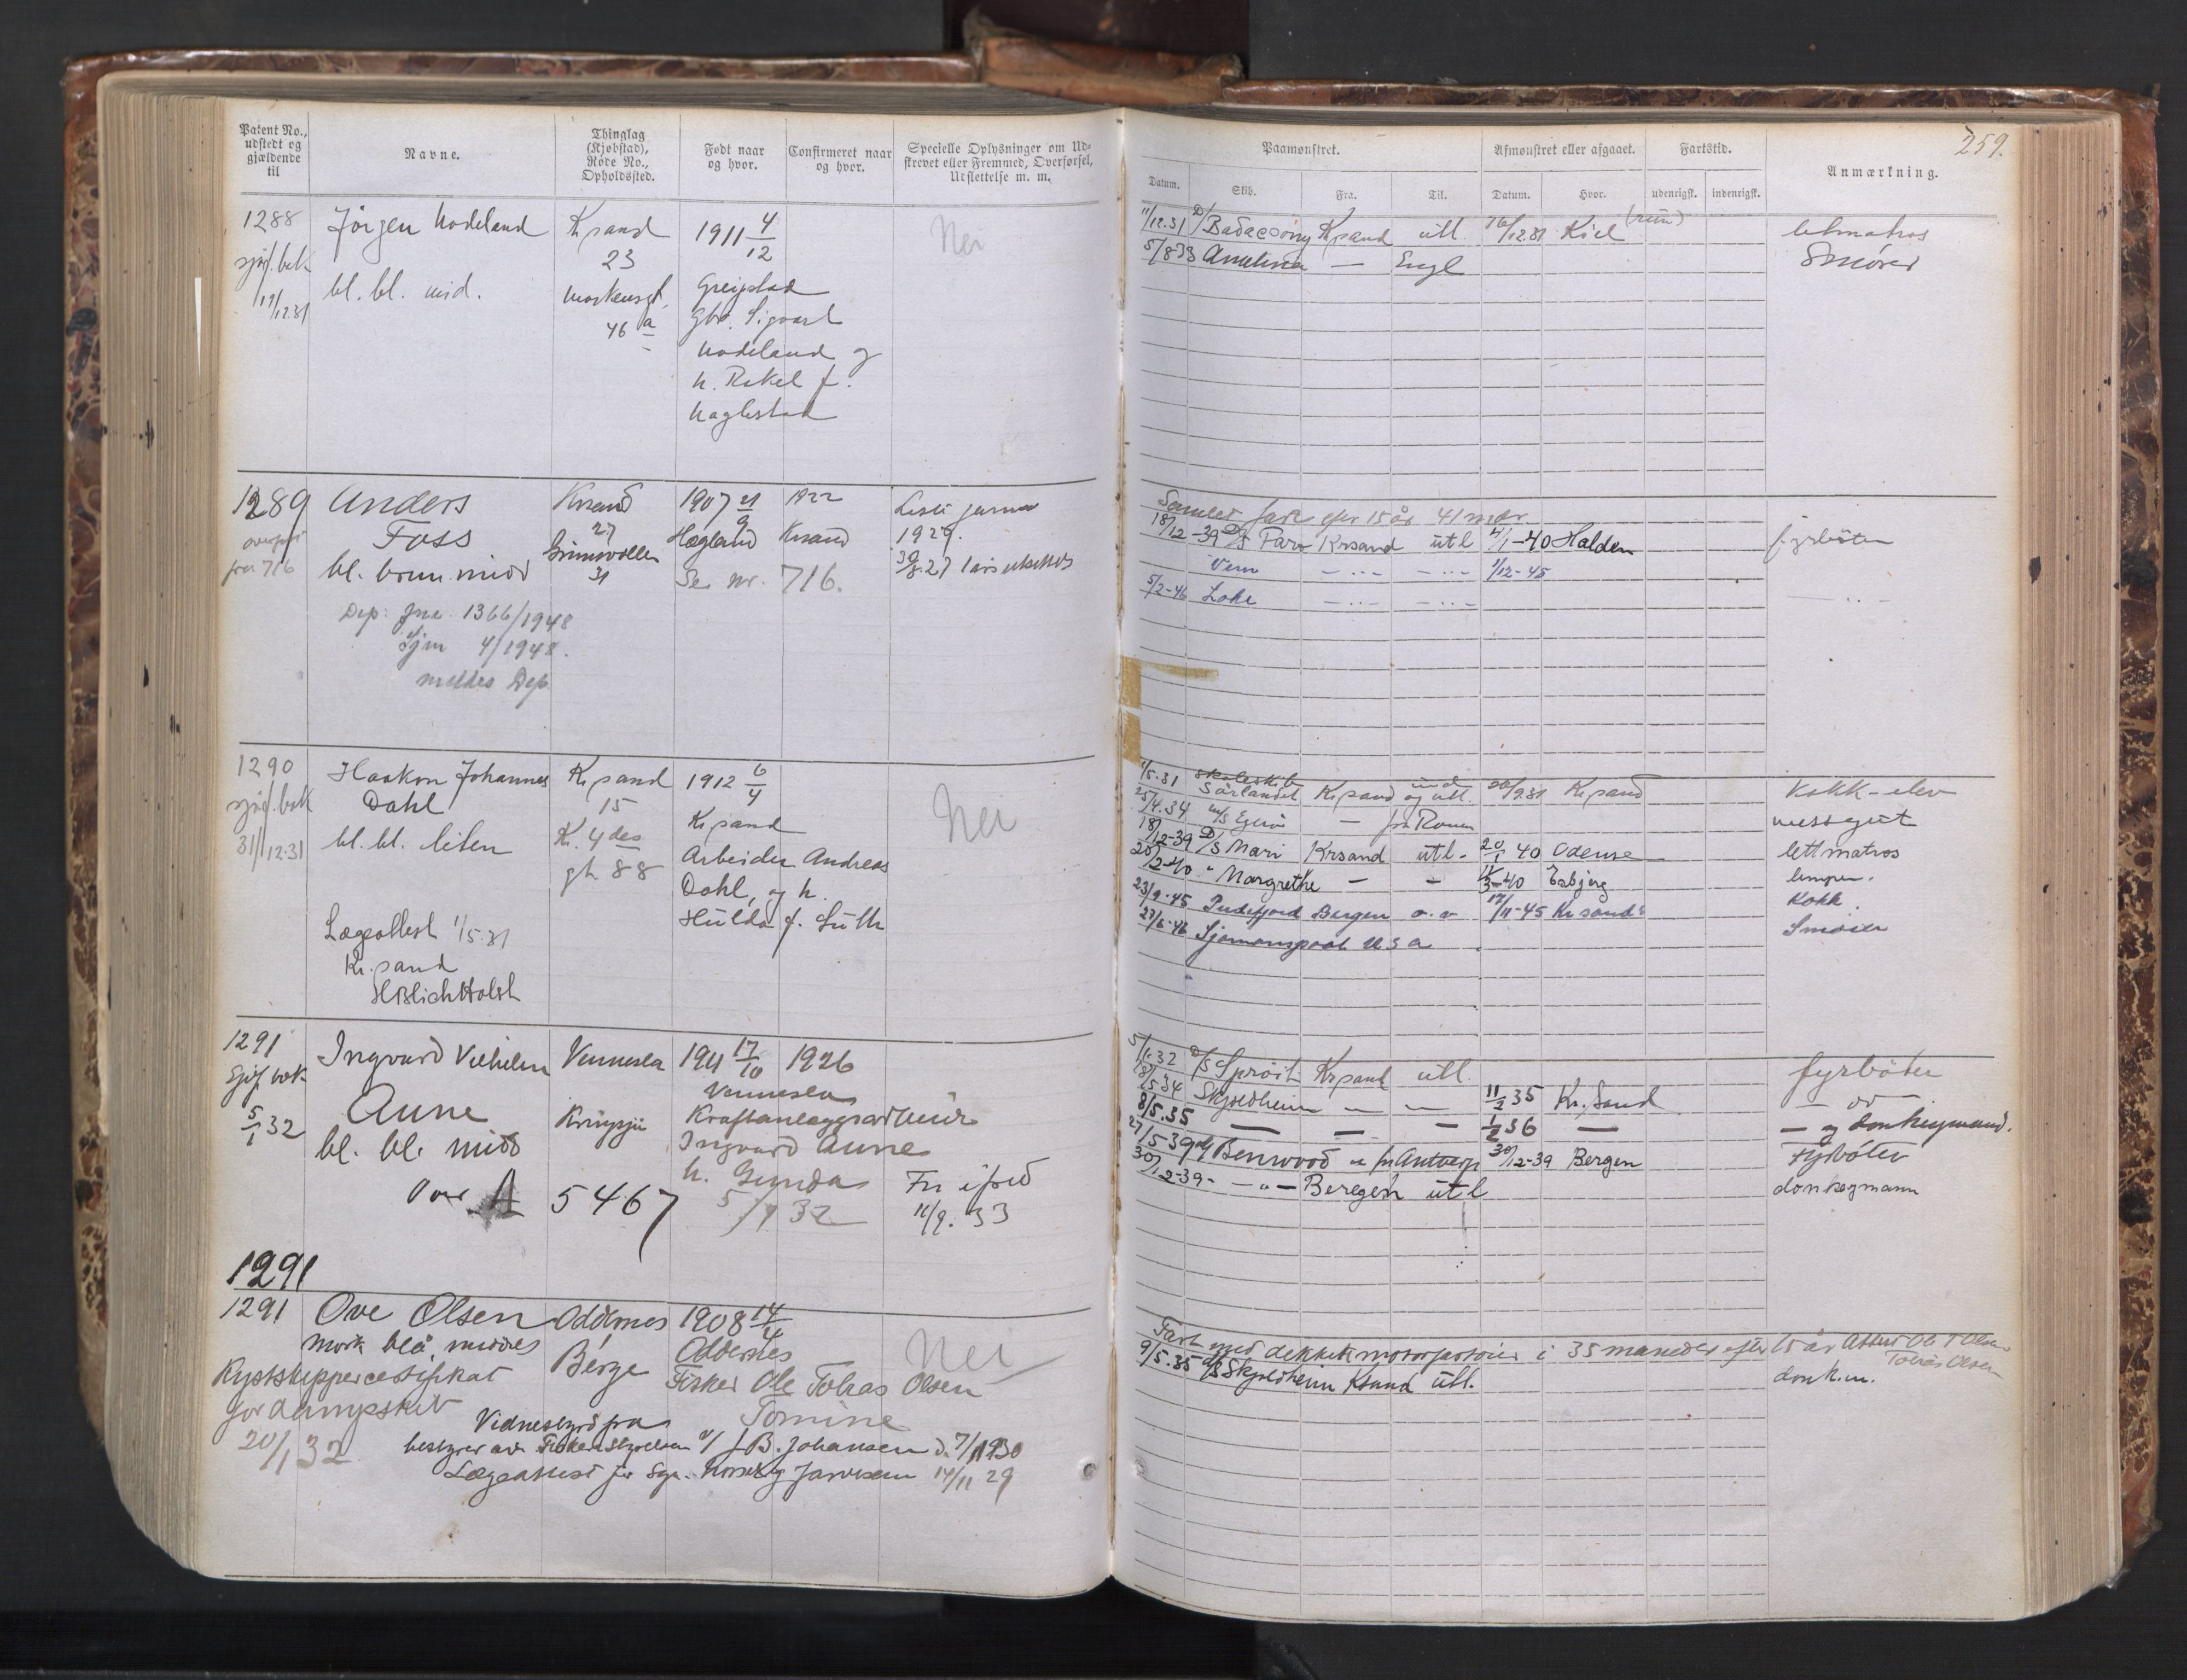 Patent No., udstedt og gjældende til
Navne.
Thinglag (Kjøbstad), Rode No., Opholdssted.
Født naar og hvor.
Confirmeret naar og hvor.
Specielle Oplysninger om Udskrevet eller Fremmed, Overførsel, Udslettelse m. m.
1288
sjøf. bok
19/12.31
Jörgen Hodeland
bl. bl. mid.
Krsand
23
46 a
1911 4/12
Greipstad
Gbr. Sigvart
Hodeland og
h. Rakel f.
Haglestad
Nei
1289
overført
fra 716
Anders
Foss
bl. brun. midd
Dep: Jnr. 1366/1948
Sjm 4/1948.
meldes Dep
Krsand
27
Grimsvollen
31
1907 21/9
Hægland
Se nr. 716.
1922
Krsand
1929.
1290
sjøf. bok
31/12.31
Haakon Johannes
Dahl
bl. bl. liten
Lægeattest 1/5.31
Kr.sand
Kr.sand
15
Kr. 4 des
gt. 88
1912 6/4
Kr.sand
Arbeider Andreas
Dahl, og h.
Hulda f. Luth
Nei
1291
Sjøf. bok
5/1 32
Ingvard Vilhelm
Aune
bl. bl. midd
Over A 5467
Vennesla
Kringsjå
1911 17/10 1926
Vennesla
Kraftanlæggsarbeider
Ingvard Aune
h. Gunda
5/9 32
11/9. 33
1291
1291
Ove Olsen
mørk blå, middels
Kystskippercertifikat
for dampskib
20/1 32
Oddernes
Berge
1908 14/4
Oddernes
Fisker Ole Tobias Olsen
Tomine
Nei
Vidnesbyrd fra
bestyrer av Fiskeristyrelsen v/ J.B. Johansen d. 7/1 1930
Lægeattest for Syn. 14/11 29
259.
Paamønstret.
Afmønstret eller afgaaet.
Fartstid.
Anmærkning.
Datum.
Skib.
Fra.
Til.
Datum.
Hvor.
udenrigsk.
indenrigsk.
11/12.31 D/ Badacsony Krsand utl. 16/12.31 Kiel (rum) letmatros
5/8 33 — Engl Smører
Samlet fart efter 15 år 41 mdr.
18/12-39 D/S Faro Krsand utl 4/1-40 Halden fyrbøter
Vem — " — — " — 1/12-45
5/2-46 Loke — " — — " — — " —
1/5.31 skoleskib Sørlandet Kr.sand ind og utl. 20/9.31 Kr.sand Kokk-elev
25/4.34 m/s Egerø — fra Rouen messegut
18/12-39 D/S Mari Krsand utl. 20/1 40 Odense lettmatros
28/2-40 " Margrethe — — 11/3-40 Esbjerg lemper.
23/9-45 Pudefjord Bergen 17/11-45 Kr sand Kokk.
27/6-46 Sjømannspool USA Smører
5/1.32 D/S Sprøit Krsand utl. fyrbøter
18/5 34 Skjoldheim — — 11/2 35 Kr. Sand
8/5.35 — — — 1/2 36 — — og donkeymand.
27/5 39 Benwood — fra Antwerp 30/12-39 Bergen Fyrbøter
30/12-39 — " — Beregen utl donkeymann
Fart med dekket motorfartøier i 35 maneder efter 15 år Attest Ole T Olsen
Tobias Olsen
9/5.35 D/S Skjoldheim Ksand utl. donk.m.